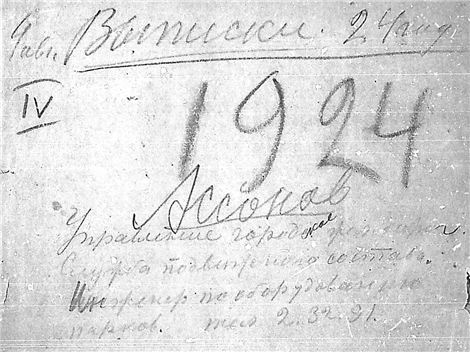 Выписки. 24 год
IV
1924
Ассонов
Управление городское
Служба подвижного состава.
Инженер по оборудованию
парков. тел 2.32.91.